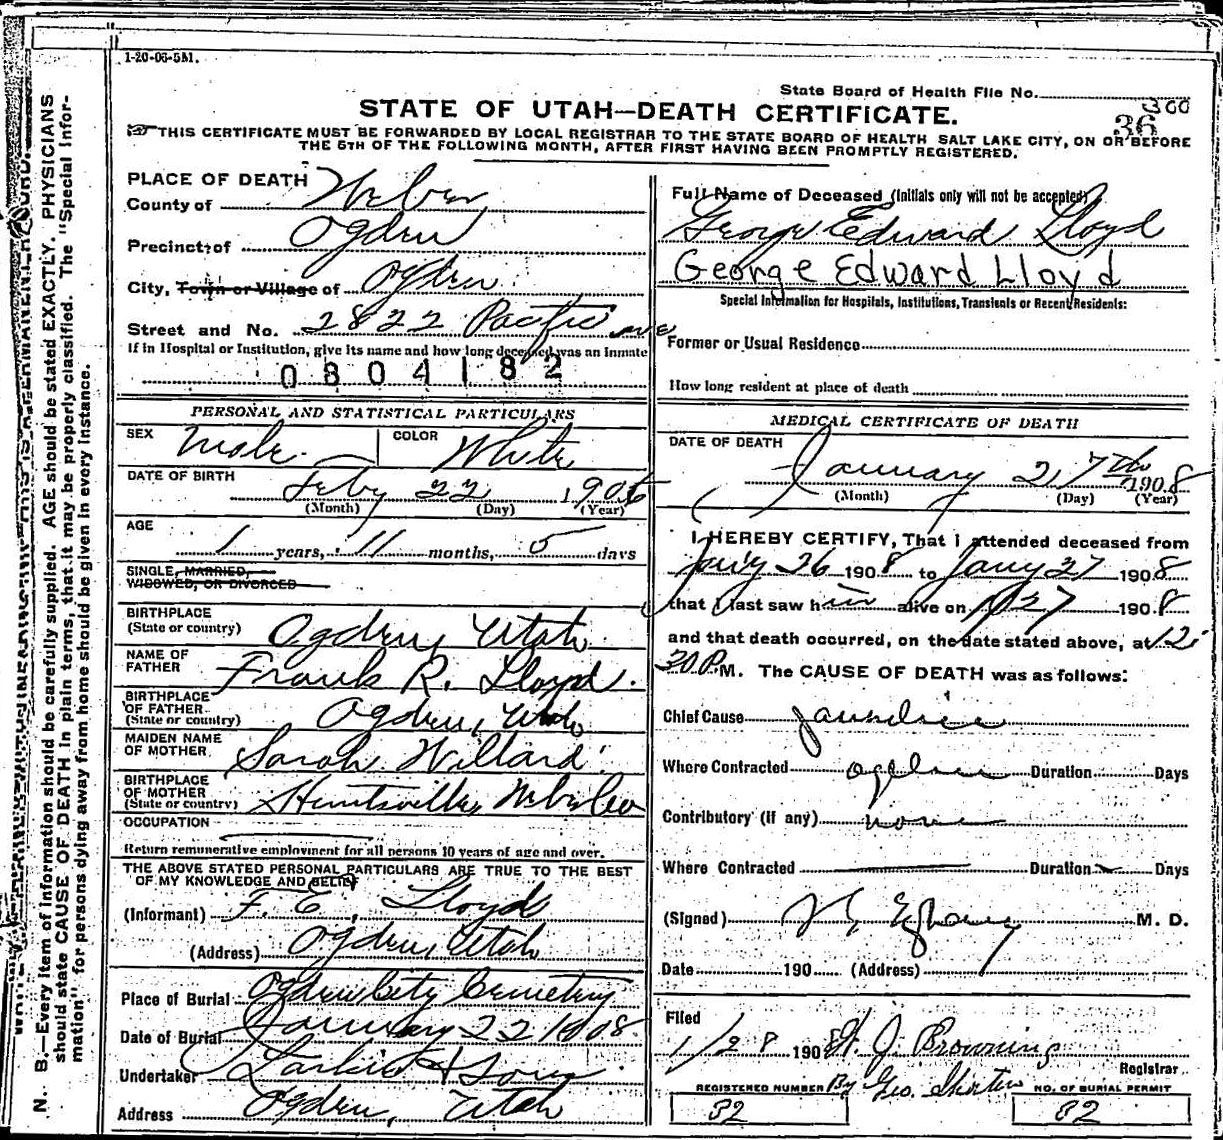 1-20-06-5M.
State Board of Health File No. 300
36
STATE OF UTAH—DEATH CERTIFICATE.
THIS CERTIFICATE MUST BE FORWARDED BY LOCAL REGISTRAR TO THE STATE BOARD OF HEALTH SALT LAKE CITY, ON OR BEFORE
THE 5TH OF THE FOLLOWING MONTH, AFTER FIRST HAVING BEEN PROMPTLY REGISTERED.
N. B.—Every item of information should be carefully supplied. AGE should be stated EXACTLY. PHYSICIANS
should state CAUSE OF DEATH in plain terms, that it may be properly classified. The "Special Infor-
mation" for persons dying away from home should be given in every instance.
PLACE OF DEATH
County of Weber
Precinct of Ogden
City, Town or Village of Ogden
Street and No. 2822 Pacific ave
If in Hospital or Institution, give its name and how long deceased was an Inmate
0804182
PERSONAL AND STATISTICAL PARTICULARS
SEX Male COLOR White
DATE OF BIRTH Feby 22 1906
(Month) (Day) (Year)
AGE
1 years, 11 months, 5 days
SINGLE, MARRIED,
WIDOWED, OR DIVORCED
BIRTHPLACE
(State or country) Ogden, Utah
NAME OF
FATHER Frank R. Lloyd.
BIRTHPLACE
OF FATHER
(State or country) Ogden, Utah
MAIDEN NAME
OF MOTHER Sarah Willard
BIRTHPLACE
OF MOTHER
(State or country) Huntsville, Weber Co
OCCUPATION
Return remunerative employment for all persons 10 years of age and over.
THE ABOVE STATED PERSONAL PARTICULARS ARE TRUE TO THE BEST
OF MY KNOWLEDGE AND BELIEF
(Informant) F. E. Lloyd
(Address) Ogden, Utah
Place of Burial Ogden City Cemetery
Date of Burial January 22 1908
Undertaker Larkin & Sons
Address Ogden, Utah
Full Name of Deceased (Initials only will not be accepted)
George Edward Lloyd
George Edward Lloyd
Special Information for Hospitals, Institutions, Transients or Recent Residents:
Former or Usual Residence
How long resident at place of death
MEDICAL CERTIFICATE OF DEATH
DATE OF DEATH
January 27th 1908
(Month) (Day) (Year)
I HEREBY CERTIFY, That I attended deceased from
Jan'y 26 1908 to Jany 27 1908
that I last saw him alive on 1/27 1908
and that death occurred, on the date stated above, at 12:
30 P.M. The CAUSE OF DEATH was as follows:
Chief Cause jaundice
Where Contracted Ogden Duration Days
Contributory (if any) none
Where Contracted Duration Days
(Signed) M. D.
Date 190 (Address)
Filed
1/28 1908 W. J. Browning
Registrar
By Geo. Shorten
REGISTERED NUMBER NO. OF BURIAL PERMIT
82 82